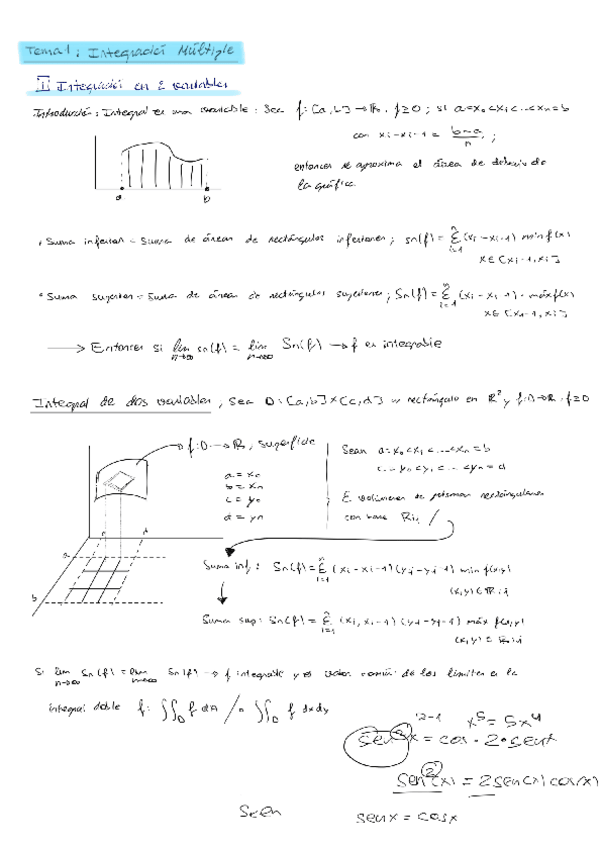 Tema 1: Integración Múltiple
I Integración en 2 variables
Introducción: Integral en una variable: Sea f: [a,b] → R. f≥0; si a=x₀<x₁<...<xₙ=b
con xᵢ-xᵢ₋₁ = b-a/n ;
entonces se aproxima el área de debajo de
la gráfica
a b
• Suma inferior = Suma de áreas de rectángulos inferiores; sn(f) = Σ (xᵢ-xᵢ₋₁) min f(x)
i=1 x∈[xᵢ₋₁,xᵢ]
• Suma superior = Suma de área de rectángulos superiores; Sn(f) = Σ (xᵢ-xᵢ₋₁)· máx f(x)
i=1 x∈[xᵢ₋₁,xᵢ]
→ Entonces si lim sn(f) = lim Sn(f) → f es integrable
n→∞ n→∞
Integral de dos variables, Sea D: [a,b]×[c,d] un rectángulo en R² y f:D→R. f≥0
f: D → R, superficie
a = x₀
b = xₙ
c = y₀
d = yₙ
Sean a=x₀<x₁<...<xₙ=b
c=y₀<y₁<...<yₙ=d
Σ volúmenes de prismas rectángulares
con base Rij
a
b
Suma inf: Sn(f) = Σ (xᵢ-xᵢ₋₁)(yⱼ-yⱼ₋₁) min f(x,y)
i=1 (x,y)∈Rij
Suma sup: Sn(f) = Σ (xᵢ,xᵢ₋₁)(yⱼ-yⱼ₋₁) máx f(x,y)
i=1 (x,y)∈Rij
Si lim Sn(f) = lim Sn(f) → f integrable y el valor común de los límites es la
n→∞ n→∞
integral doble f: ∫∫_D f dA / o ∫∫_D f dxdy
2-1 x⁵ = 5x⁴
sen²x = cos · 2 · senx
sen²(x) = 2sen(x) cos(x)
senx = cosx